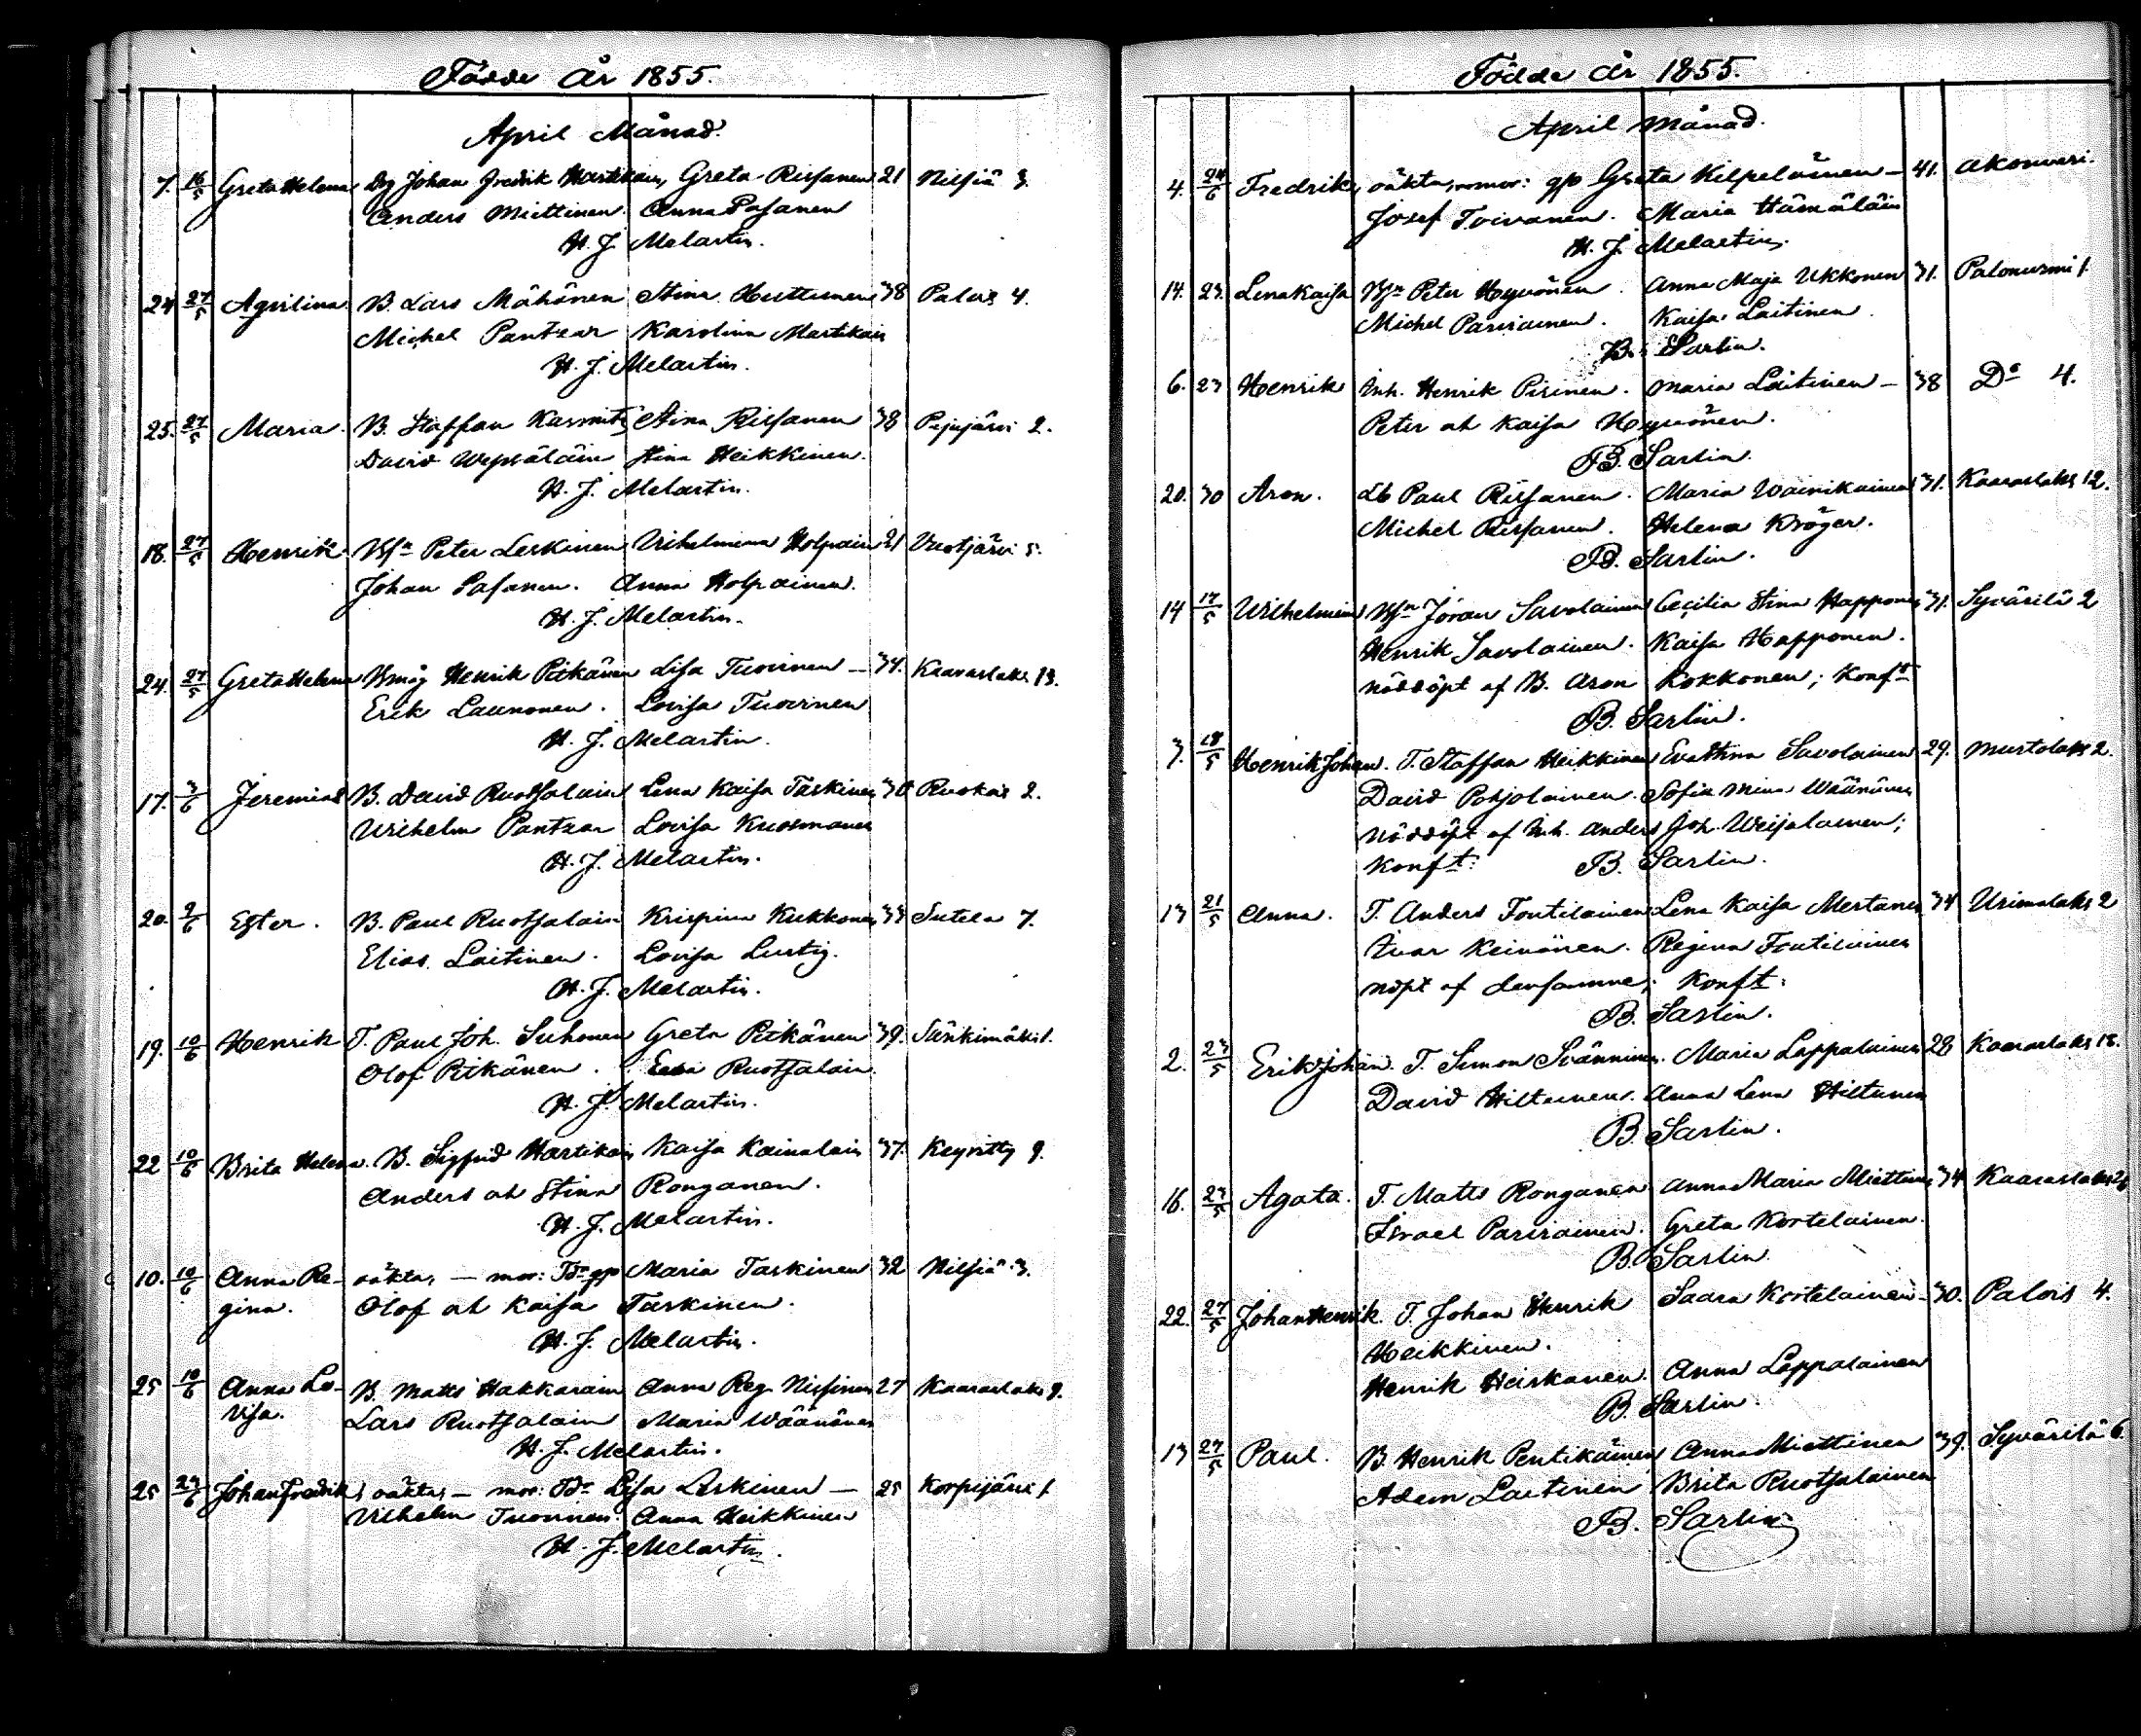 Födde År 1855.
April Månad.
7. 16/5 Greta Helena Drg Johan Fredrik Hartikain, Greta Rissanen 21 Nilsiä 3.
Anders Miettinen. Anna Pasanen
H. J. Melartin.
24 27/5 Agnilina B. Lars Mähönen Stina Huttunen 38 Palois 4.
Michel Pantzar Karolina Martikain
H. J. Melartin.
25. 27/5 Maria. B. Staffan Stina Rissanen 38 Pajujärvi 2.
David Wepsäläin Stina Heikkinen.
H. J. Melartin.
18. 27/5 Henrik. Bsn Peter Leskinen Vilhelmina Holpain 21 Vuotjärvi 5.
Johan Pasanen. Anna Holpainen.
H. J. Melartin.
24. 27/5 Greta Helena Bmåg Henrik Pitkänen Lisa Tuovinen — 34. Kaaraslaks 13.
Erik Launonen. Lovisa Tuovinen
H. J. Melartin.
17. 3/6 Jeremias B. David Ruotsalain Lena Kaisa Taskinen 30 Ruokois 2.
Wilhelm Pantzar Lovisa Kuosmanen
H. J. Melartin.
20. 9/6 Ester. B. Paul Ruotsalain Krispina Kukkonen 33 Sutela 7.
Elias Laitinen. Lovisa Lustig.
H. J. Melartin.
19. 10/6 Henrik T. Paul Joh. Suhonen Greta Pitkänen 39. Sänkimäki 1.
Olof Pitkänen. Eeva Ruotsalain.
H. J. Melartin.
22 10/6 Brita Helena. B. Sigfrid Hartikain Kaisa Kainulain 37. Keyritty 9.
Anders ah Stina Ronganen.
H. J. Melartin.
10. 10/6 Anna Re- oäkta, — mor: Bdr gp Maria Taskinen 32 Nilsiä 3.
gina. Olof ah Kaisa Taskinen.
H. J. Melartin.
25 10/6 Anna Lo- B. Matts Hakkarain Anna Reg. Nissinen 27 Kaaraslaks 9.
visa. Lars Ruotsalain Maria Wäänänen
H. J. Melartin.
25 23/6 Johan Fredrik, oäkta, — mor: Bdr Lisa Leskinen — 25 Korpijärvi 1.
Vilhelm Tuovinen. Anna Heikkinen
H. J. Melartin.
Födde År 1855.
April Månad.
4. 24/6 Fredrik, oäkta, mor: gp Greta Kilpeläinen — 41. Akonvesi.
Josef Toivanen. Maria Hämäläin
H. J. Melartin.
14. 23. Lena Kaisa Bsn Peter Hyvönen. Anna Maja Ukkonen 31. Palonurmi 1.
Michel Parviainen. Kaisa Laitinen.
B. Sarlin.
6. 23 Henrik Inh. Henrik Pirinen. Maria Laitinen — 38 Do 4.
Peter ah Kaisa Hyvönen.
B. Sarlin.
20. 30 Aron. Lb Paul Rissanen. Maria Wainikainen 31. Kaaraslaks 12.
Michel Rissanen. Helena Kröger.
B. Sarlin.
14 17/5 Wilhelmina Bsn Jöran Savolainen Cecilia Stina Happonen 31. Syvärilä 2
Henrik Savolainen. Kaisa Happonen.
nöddöpt af B. Aron Kokkonen; Konft
B. Sarlin.
7. 18/5 Henrik Johan. T. Staffan Heikkinen Eva Stina Savolainen 29. Murtolaks 2.
David Pohjolainen. Sofia Mina Wäänänen
nöddöpt af Inh. Anders Joh. Weijalainen;
Konft: B. Sarlin.
13 21/5 Anna. T. Anders Toutilainen Lena Kaisa Mertanen 34 Urimolaks 2
Ivar Keinönen. Regina Toutilainen
nöpt af densamme; Konft:
B. Sarlin.
2. 23/5 Erik Johan. T. Simon Svänninen. Maria Lappalainen 28 Kaaraslaks 18.
David Hiltunen. Anna Lena Hiltunen
B. Sarlin.
16. 23/5 Agata. T. Matts Ronganen Anna Maria Miettinen 34 Kaaraslaks 26
Israel Parviainen. Greta Kortelainen.
B. Sarlin.
22. 27/5 Johan Henrik. T. Johan Henrik Saara Kortelainen — 30. Palois 4.
Heikkinen.
Henrik Heiskanen. Anna Lappalainen
B. Sarlin.
13 27/5 Paul. B. Henrik Pentikäinen Anna Miettinen 39. Syvärilä 6.
Adam Laitinen Brita Ruotsalainen
B. Sarlin.